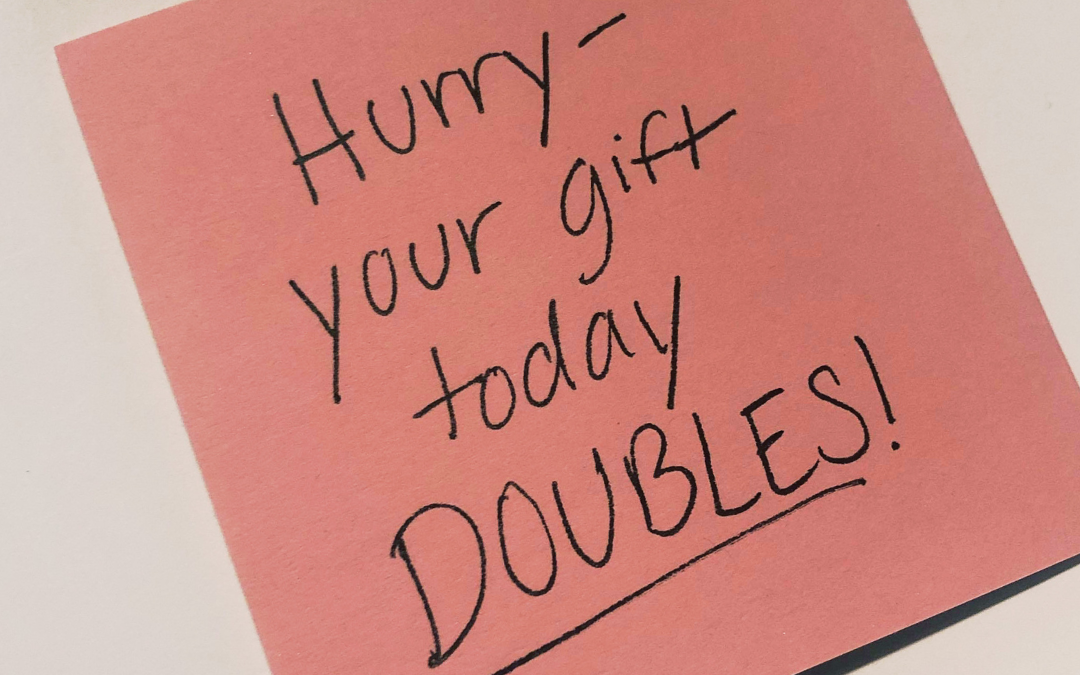 Hurry-
your gift
today
DOUBLES!